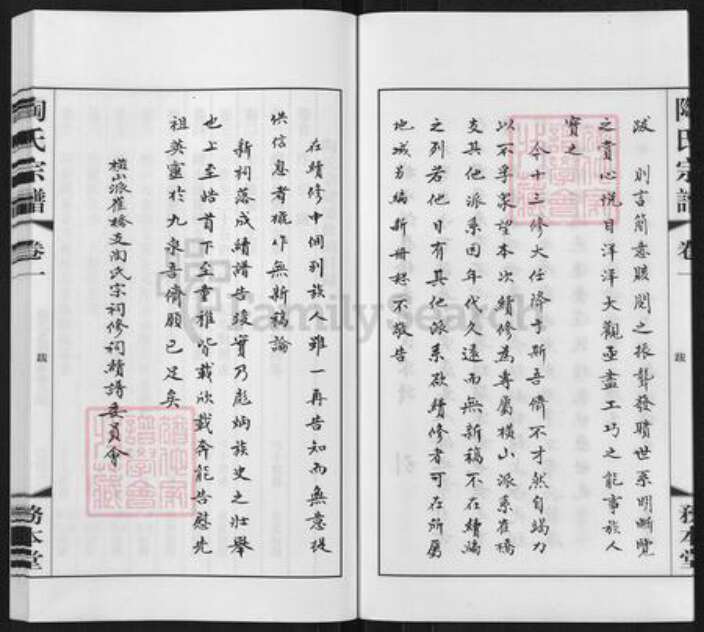 陶氏宗譜 卷一
跋
務本堂
跋 則言簡意賅閱之振聾發聵世系明晰覽
之賞心悅目洋洋大觀亟盡工巧之能事族人
寶之
今十三修大任降于斯吾儕不才然自竭力
以不孚眾望本次續修為專屬橫山派系崔橋
支其他派系因年代久遠而無新稿不在續編
之列若他日有其他派系欲續修者可在所屬
地域另編新冊恕不敬告
在續修中間到族人雖一再告知而無意提
供信息者概作無新稿論
新祠落成續譜告竣實乃彪炳族史之壯舉
也上至始首下至童稚皆載欣載奔能告慰先
祖英靈於九泉吾儕願已足矣
橫山派崔橋支陶氏宗祠修祠續譜委員會
陶氏宗譜 卷一
跋
務本堂
FamilySearch